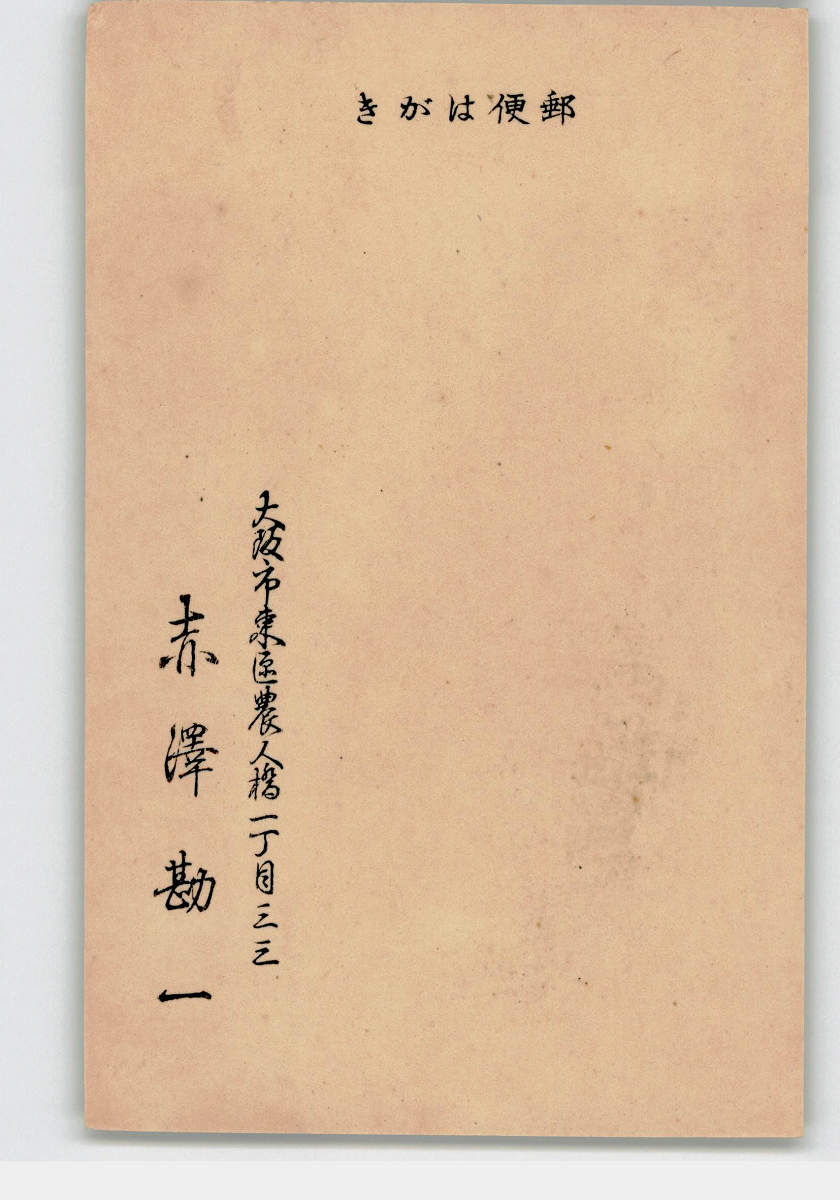 郵便はがき
大阪市東區農人橋一丁目三三
赤澤勘一